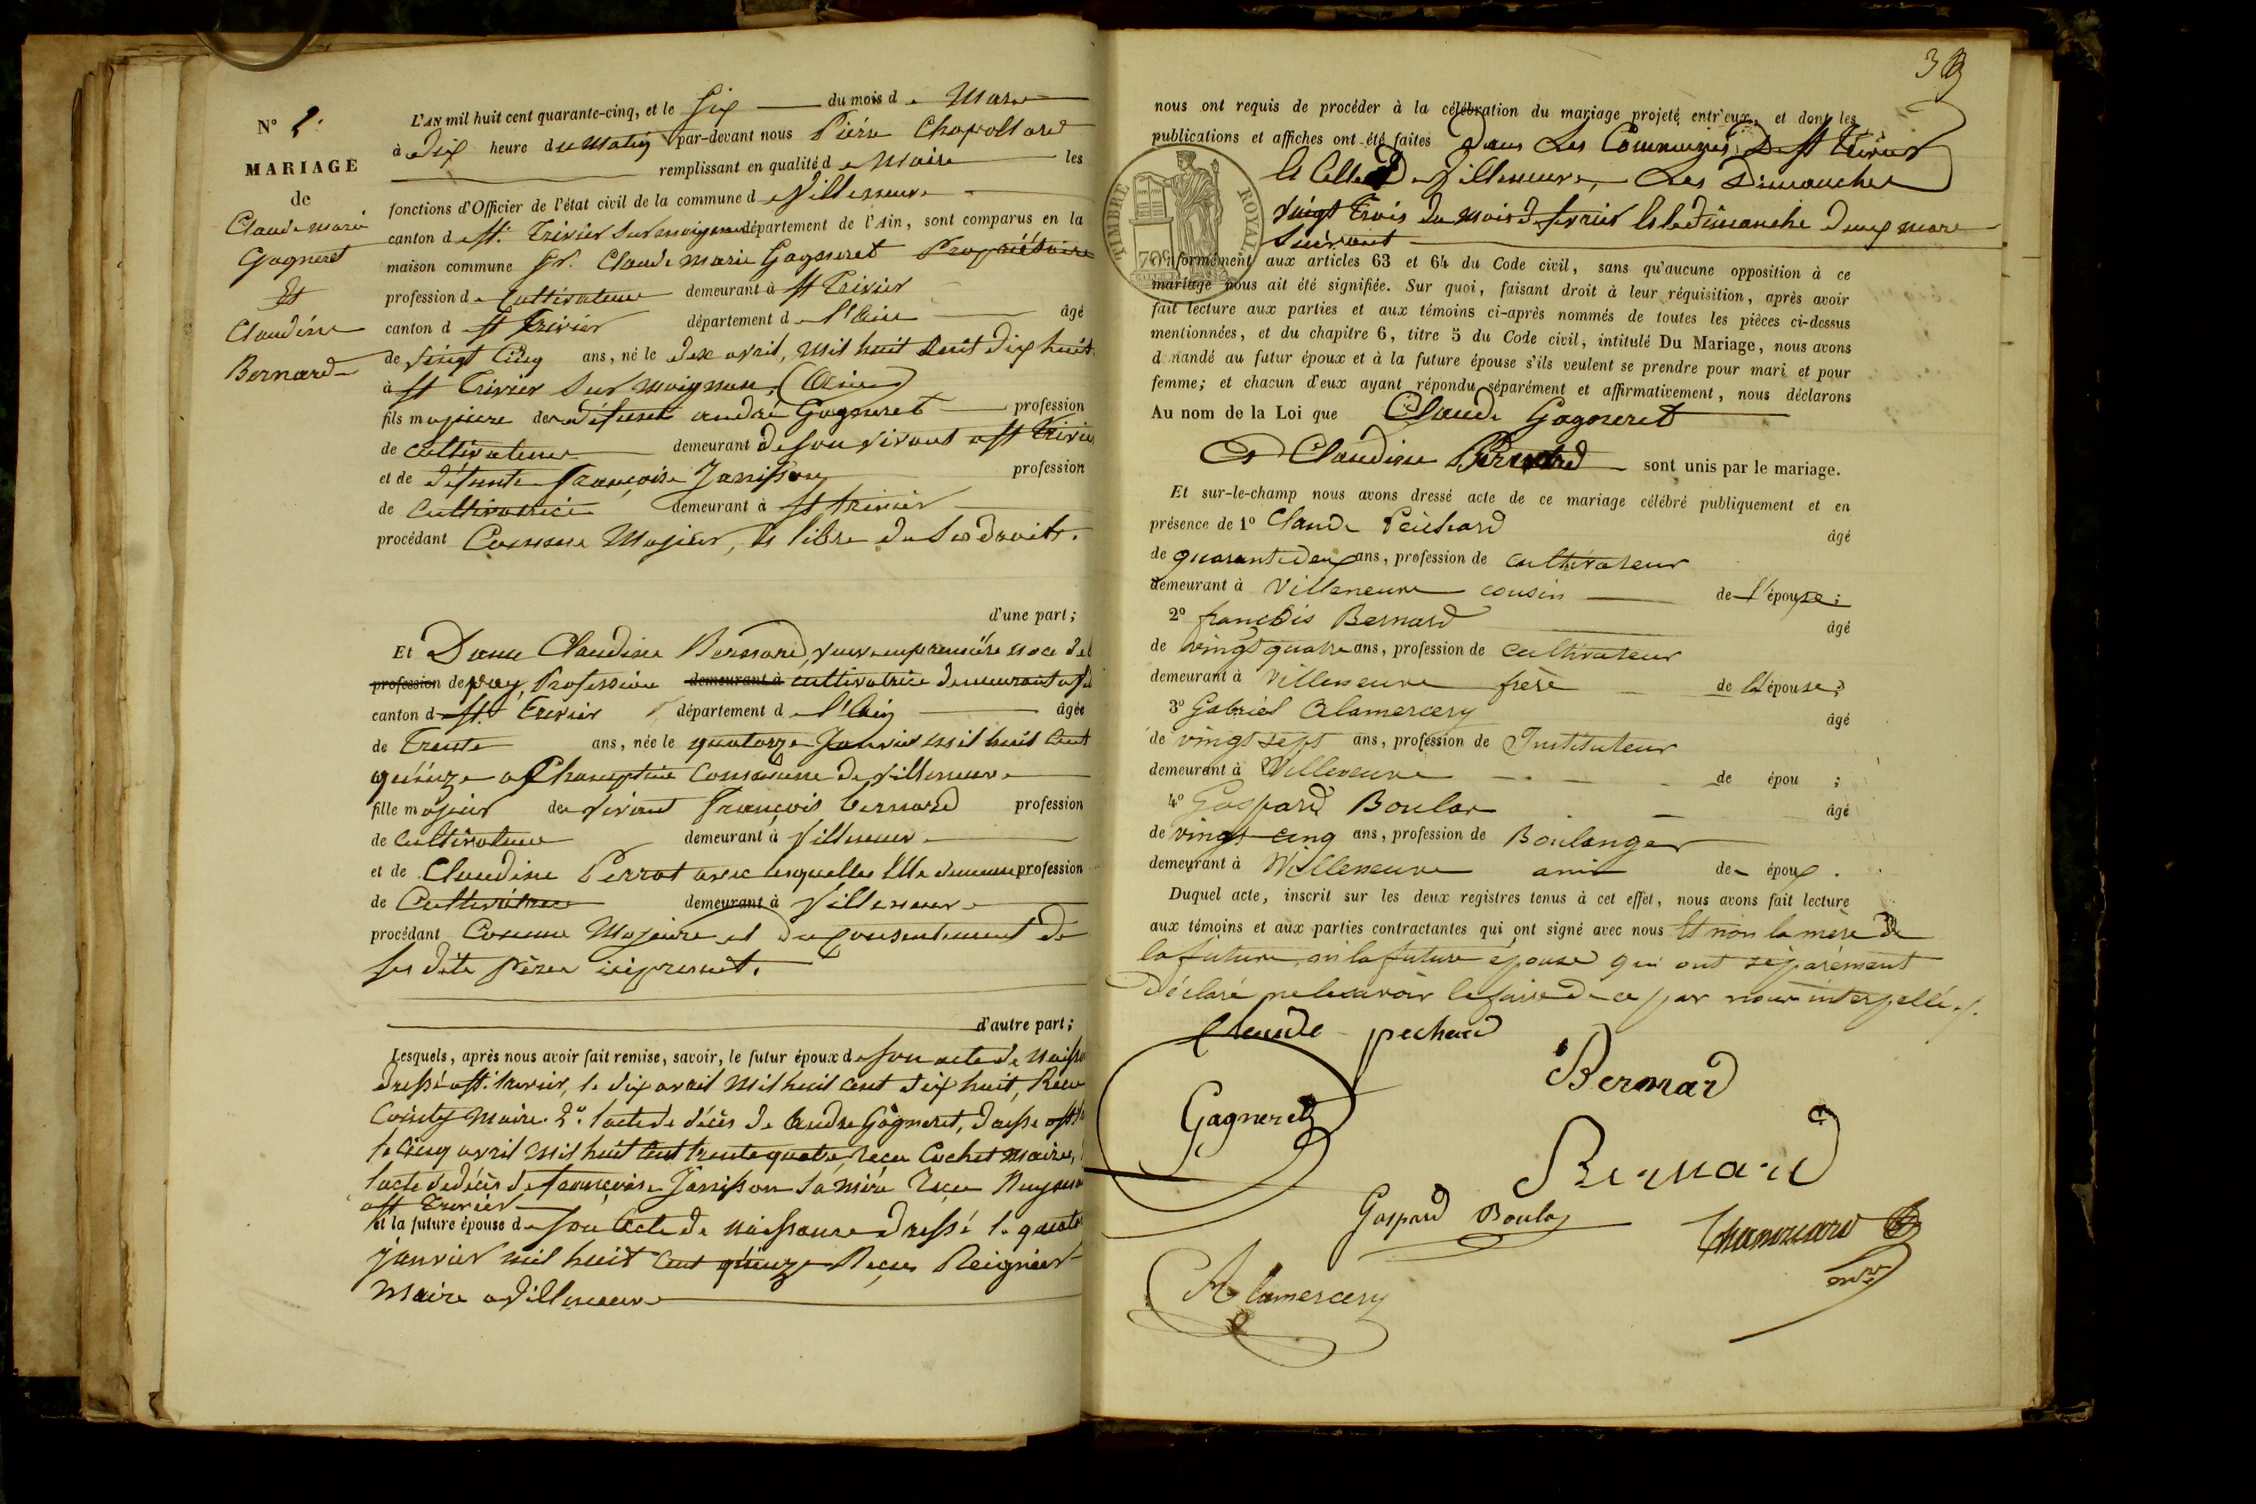 N° 2.
MARIAGE
de
Claude marie
Gagneret
Et
Claudine
Bernard
L'AN mil huit cent quarante-cinq, et le Six du mois de Mars
à dix heure du Matin par-devant nous Piérre
remplissant en qualité de Maire les
fonctions d'Officier de l'état civil de la commune de Villeneuve
canton de St. Trivier Sur moignans département de l'Ain, sont comparus en la
maison commune Sr. Claude marie Gagneret Propriétaire
profession de Cultivateur demeurant à St Trivier
canton d St Trivier département de l'Ain âgé
de Vingt Cinq ans, né le dix avril, mil huit Cent dix huit
à St Trivier Sur moignans, (Ain)
fils majeure de défunt andré Gagneret profession
de cultivateur demeurant de son vivant a St Trivier
et de défunte françoise Janisson profession
de Cultivatrice demeurant à St trivier
procédant Comme Majeur, et libre de Ses droits.
d'une part;
Et Dame Claudine Bernard, veuve en premiére noce de
profession de Profession demeurant à cultivatrice demeurant a
canton d St. Trivier département de l'Ain âgée
de Trente ans, née le quatorze Janvier mil huit Cent
quinze a Champtein Commune de Villeneuve
fille majeur de vivant François bernard profession
de Cultivateur demeurant à Villeneuve
et de Claudine Perrat avec lesquelles Elle demeure profession
de Cultivatrice demeurant à Villeneuve
procédant Comme Majeure et du Consentement de
ses dits Père ici présent.
d'autre part;
Lesquels, après nous avoir fait remise, savoir, le futur époux de son acte de Naiss
dressé a St. trivier, le dix avril mil huit cent dix huit, Recu
Maire. 2° l'acte de décès de André Gagneret, dresse a St
le Cinq avril mil huit Cent trente quatre, recu Cochet maire,
l'acte de décès de françoise Janisson Sa mére recu
a St Trivier
et la future épouse de son Acte de naissance dressé le quato
janvier mil huit Cent quinze Recu Reignier
Maire a Villeneuve
33
nous ont requis de procéder à la célébration du mariage projeté entr'eux, et dont les
publications et affiches ont été faites dans Les Communes De St Trivier
et Celle De Villeneuve, Les Dimanches
Vingt Trois du mois de fevrier et le dimanche deux mars
Suivant
TIMBRE ROYAL
70c
conformément aux articles 63 et 64 du Code civil, sans qu'aucune opposition à ce
mariage nous ait été signifiée. Sur quoi, faisant droit à leur réquisition, après avoir
fait lecture aux parties et aux témoins ci-après nommés de toutes les pièces ci-dessus
mentionnées, et du chapitre 6, titre 5 du Code civil, intitulé Du Mariage, nous avons
demandé au futur époux et à la future épouse s'ils veulent se prendre pour mari et pour
femme; et chacun d'eux ayant répondu séparément et affirmativement, nous déclarons
Au nom de la Loi que Claude Gagneret
Et Claudine Bernard sont unis par le mariage.
Et sur-le-champ nous avons dressé acte de ce mariage célébré publiquement et en
présence de 1° Claude Péichard âgé
de quarante deux ans, profession de cultivateur
demeurant à Villeneuve cousin de l'épouse;
2° françois Bernard âgé
de vingt quatre ans, profession de cultivateur
demeurant à Villeneuve frère de l'épouse;
3° Gabriel Alamercery âgé
de vingt sept ans, profession de Instituteur
demeurant à Villeneuve de épou ;
4° Gaspard Boulay âgé
de vingt cinq ans, profession de Boulanger
demeurant à Villeneuve ami de époux.
Duquel acte, inscrit sur les deux registres tenus à cet effet, nous avons fait lecture
aux témoins et aux parties contractantes qui ont signé avec nous Et non la mère de
la future, ni la future épouse qui ont séparément
déclaré ne le savoir le faire de ce par nous interpellé.
Claude pechard
Bernard
Gagneret
Bernard
Gaspard Boulay
Alamercery